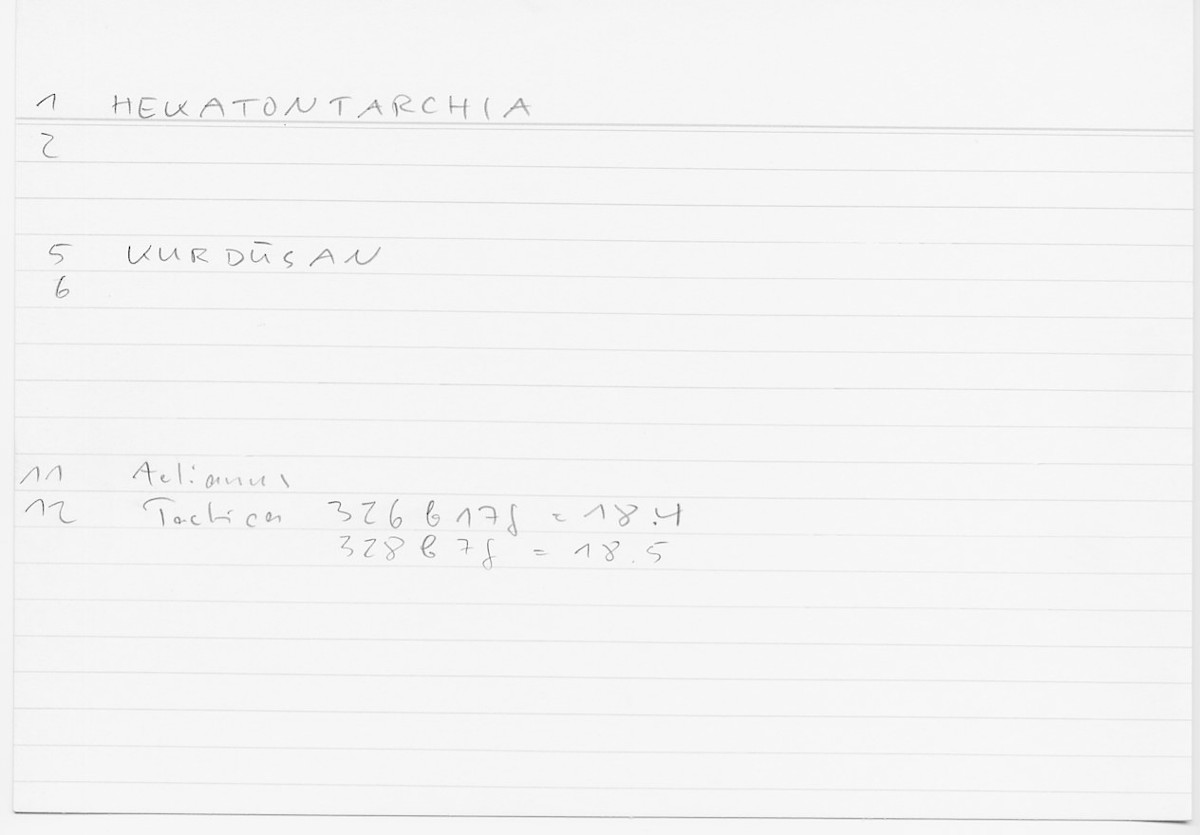 1 HEKATONTARCHIA
2
5 KURDŪSAN
6
11 Aelianus
12 Tactica 326 b 17f = 18.4
328 b 7f = 18.5